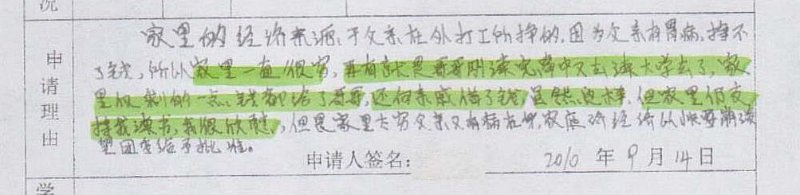 况
申请理由
家里的经济来源,于父亲在外打工所挣的,因为父亲有胃病,挣不
了钱,所以家里一直很穷,再有就是哥哥刚读完高中又去读大学去了,家
里仅剩的一点钱都给了哥哥,还向亲戚借了钱,虽然这样,但家里仍支
持我读书,我很欣慰,但是家里太穷父亲又有病在身,家庭的经济
望团委给予批准。
申请人签名:
2010 年 9 月 14 日
学